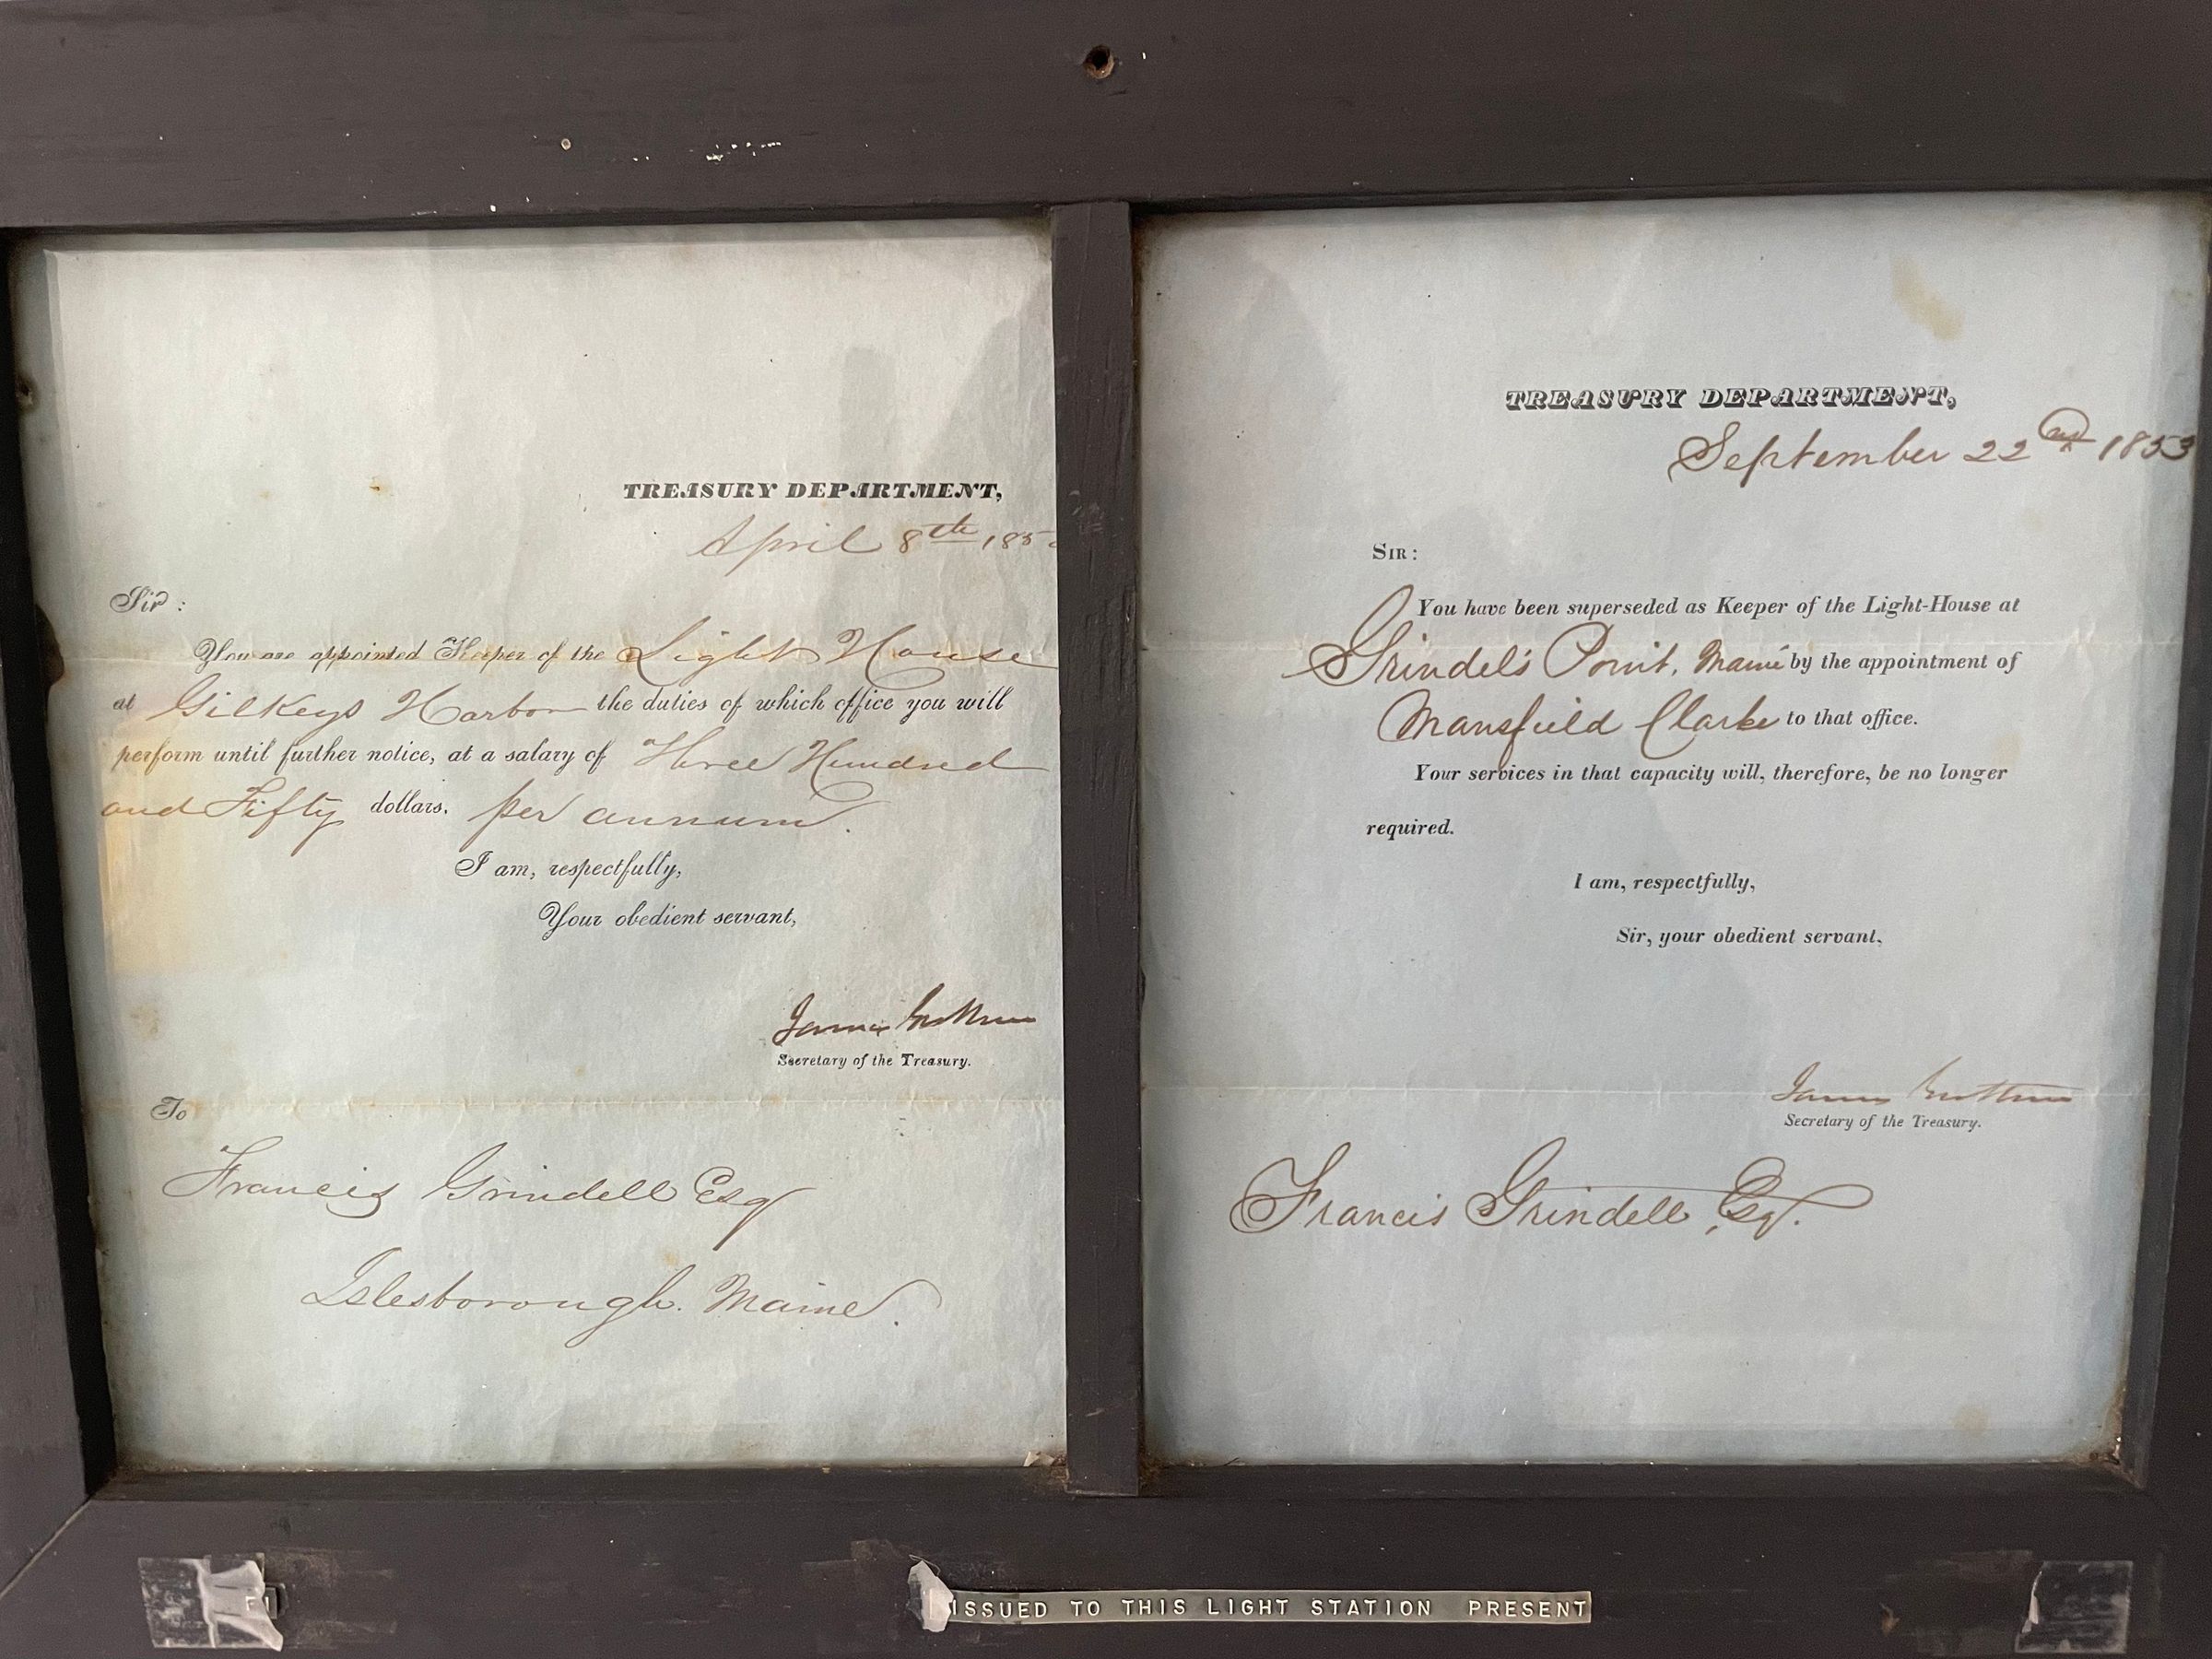 TREASURY DEPARTMENT,
April 8th, 185
Sir:
You are appointed Keeper of the Light House
at Gilkeys Harbor the duties of which office you will
perform until further notice, at a salary of Three Hundred
and Fifty dollars. per annum.
I am, respectfully,
Your obedient servant,
James Guthrie
Secretary of the Treasury.
To
Francis Grindell Esq
Islesborough. Maine.
TREASURY DEPARTMENT,
September 22nd 1853
SIR:
You have been superseded as Keeper of the Light-House at
Grindel's Point, Maine by the appointment of
Mansfield Clarke to that office.
Your services in that capacity will, therefore, be no longer
required.
I am, respectfully,
Sir, your obedient servant,
James Guthrie
Secretary of the Treasury.
Francis Grindell Esq.
ISSUED TO THIS LIGHT STATION PRESENT